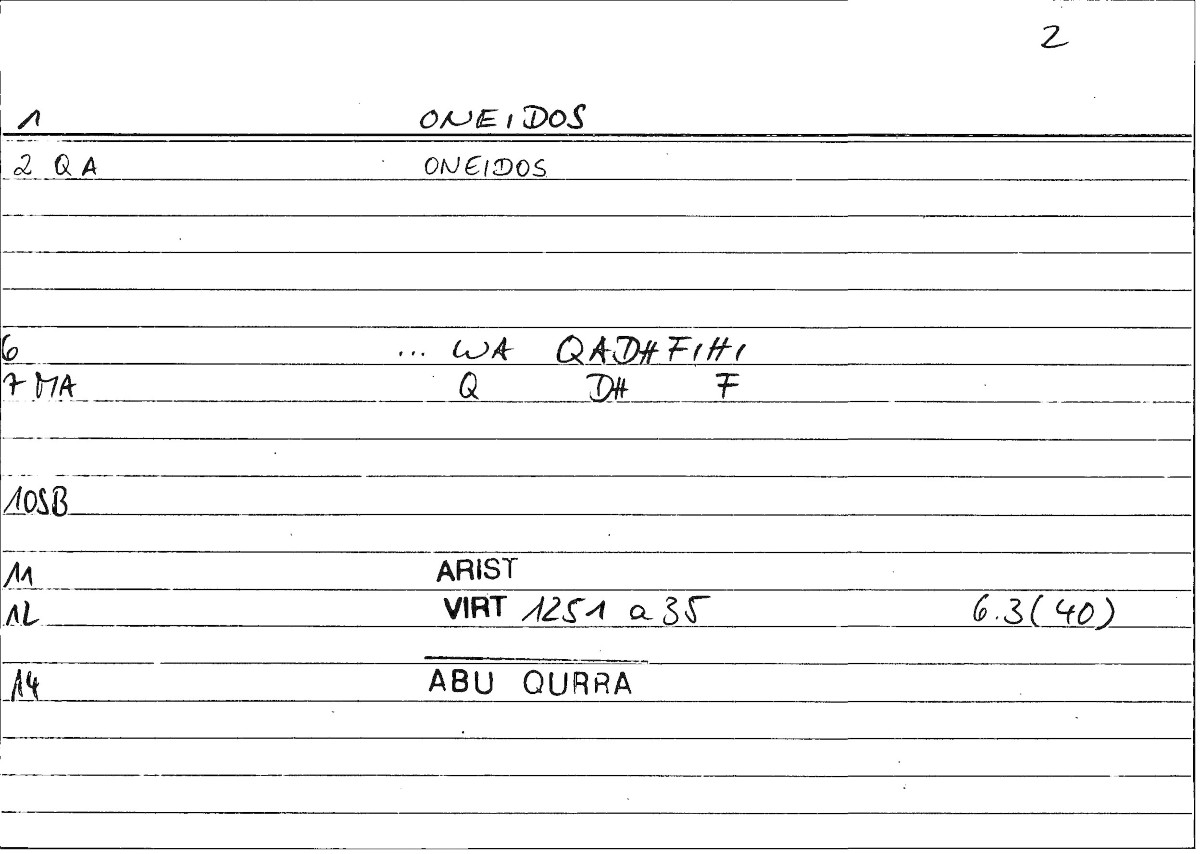 2
1 ONEIDOS
2 QA ONEIDOS
6 ... WA QADHFIHI
7 MA Q DH F
10SB
11 ARIST
12 VIRT 1251 a 35 6.3(40)
14 ABU QURRA